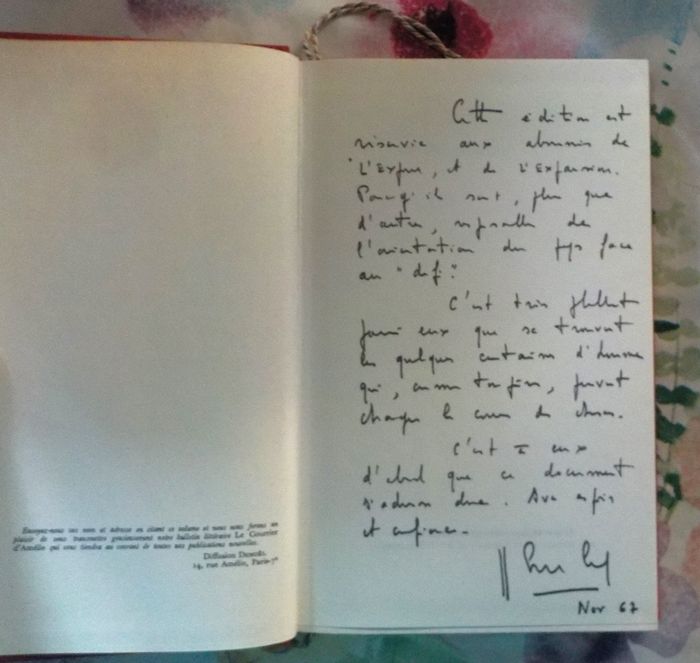 Envoyez-nous vos nom et adresse en citant ce volume et nous nous ferons un
plaisir de vous transmettre gracieusement notre bulletin littéraire Le Courrier
d'Amélie qui vous tiendra au courant de toutes nos publications nouvelles.
Diffusion Denoël
14, rue Amélie, Paris-7e
Cette édition est
réservée aux abonnés de
L'Express, et de L'Expansion.
Parce qu'ils sont, plus que
d'autres, responsables de
l'orientation du pays face
au "défi".
C'est très probablement
parmi eux que se trouvent
les quelques centaines d'hommes
qui, comme toujours, peuvent
changer le cours des choses.
C'est à eux
d'abord que ce document
s'adresse donc. Avec espoir
et confiance.
Nov 67